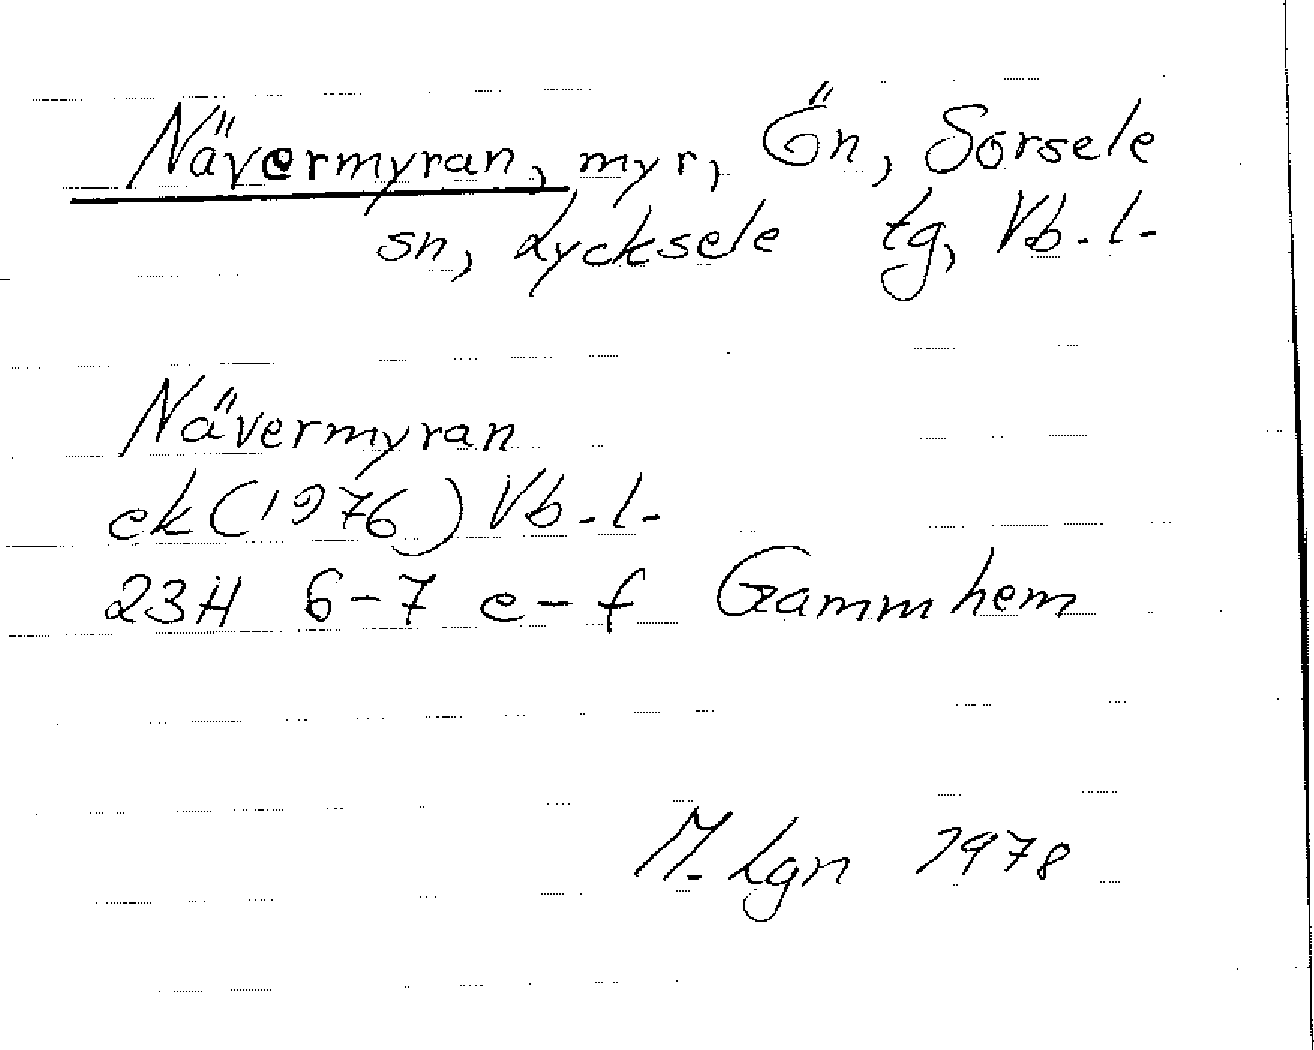 Nävermyran, myr, Ön, Sorsele
sn, Lycksele tg, Vb. l.
Nävermyran
ek (1976) Vb. l.
23H 6-7 e-f Gammhem
M. Lgn 1978